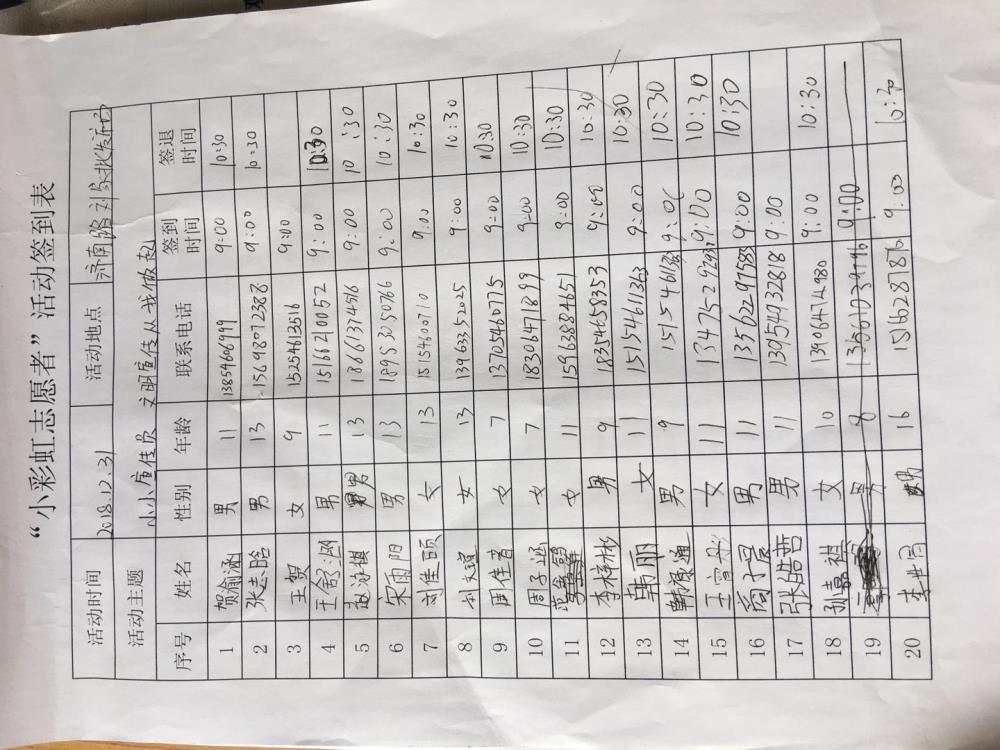 “小彩虹志愿者”活动签到表
活动时间 2018.12.31 活动地点 济南路刘家批发市场
活动主题 小小宣传员 文明宣传从我做起
序号 姓名 性别 年龄 联系电话 签到时间 签退时间
1 贺渝涵 男 11 13854606999 9:00 10:30
2 张志晗 男 13 15698072388 9:00 10:30
3 王贺 女 9 15254613516 9:00
4 王舒 男 11 15166210052 9:00 10:30
5 男 13 18661374516 9:00 10:30
6 宋雨阳 男 13 18953030766 9:00 10:30
7 刘佳颐 女 13 15154600710 9:00 10:30
8 女 13 13963352025 9:00 10:30
9 周佳音 女 7 13705460775 9:00 10:30
10 周子涵 女 7 18306471899 9:00 10:30
11 女 11 15963884651 9:00 10:30
12 李梓彬 男 9 18354658353 9:00 10:30
13 韩丽 女 11 15154611363 9:00 10:30
14 韩 男 9 15154611363 9:00 10:30
15 王 女 11 9:00 10:30
16 尚 男 11 9:00 10:30
17 张皓哲 男 11 13954932818 9:00
18 嘉祺 女 10 13906474980 9:00 10:30
19 男 8 9:00
20 李 16 15662878786 9:00 10:30